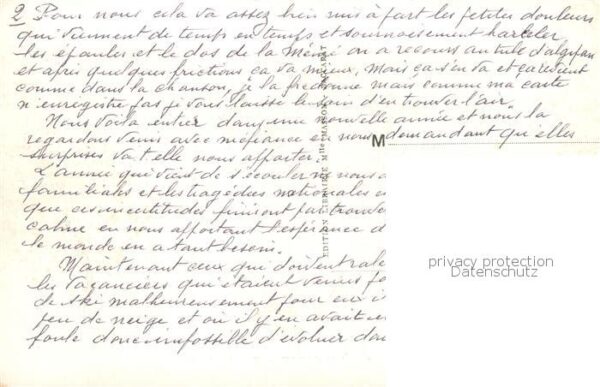 2 Pour nous cela va assez bien mis à part les petites douleurs
qui viennent de temps en temps et sournoisement harceler
les épaules et le dos de la Mémé on a recours au tube d'algipan
et après quelques frictions ça va mieux, mais ça s'en va et ça revient
comme dans la chanson, je la fredonne mais comme ma carte
n'enregistre pas je vous laisse le soin d'en trouver l'air.
Nous voilà entrer dans une nouvelle année et nous la
regardons venir avec méfiance et nous demandant qu'elles
surprises va t'elle nous apporter.
L'année qui vient de s'écouler ne nous a
familiales et les tragédies nationales e
que ces incertitudes finiront par trouver
calme en nous apportant l'espérance d
le monde en a tant besoin.
Maintenant ceux qui doivent râler
les vacanciers qui étaient venus fa
de ski malheureusement pour eux i
peu de neige et où il y en avait e
foule donc impossible d'évoluer dou
M
EDITION LIBRAIRIE Mlle
privacy protection
Datenschutz